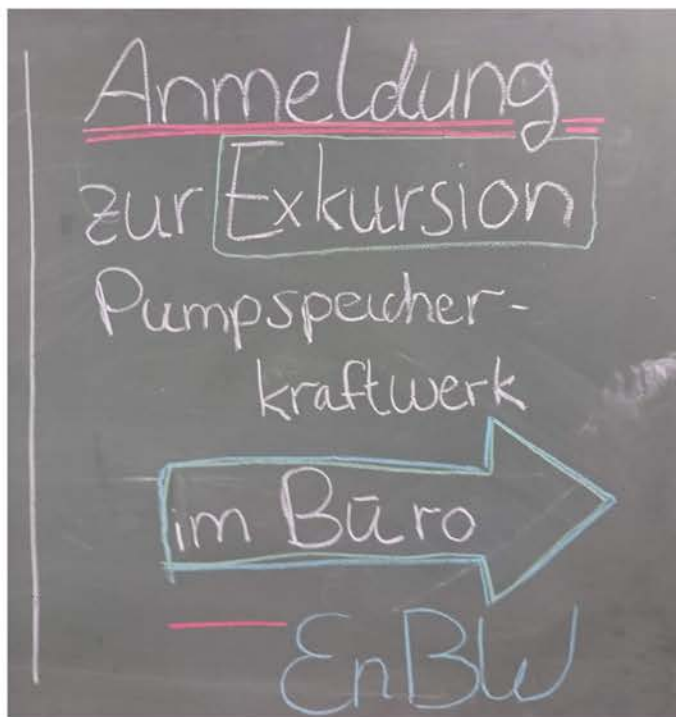 Anmeldung
zur Exkursion
Pumpspeicher-
kraftwerk
im Büro
EnBW